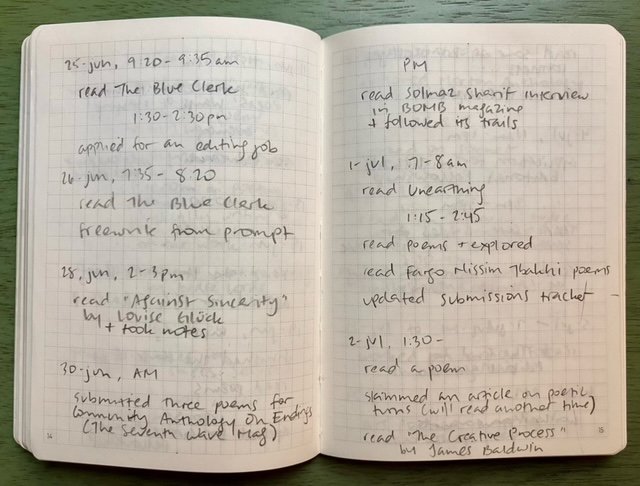 25-jun, 9:20-9:35am
read The Blue Clerk
1:30-2:30pm
applied for an editing job
26-jun, 7:35-8:20
read The Blue Clerk
freewrite from prompt
28, jun, 2-3pm
read "Against Sincerity"
by Louise Glück
+ took notes
30-jun, AM
submitted three poems for
Community Anthology On Endings
(The Seventh Wave Mag)
14
PM
read Solmaz Sharif interview
in BOMB magazine
+ followed its trails
1-jul, 7-8am
read Unearthing
1:15-2:45
read poems + explored
read Fargo Nissim Tbakhi poems
updated submissions tracker
2-jul, 1:30-
read a poem
skimmed an article on poetic
turns (will read another time)
read "The Creative Process"
by James Baldwin
15